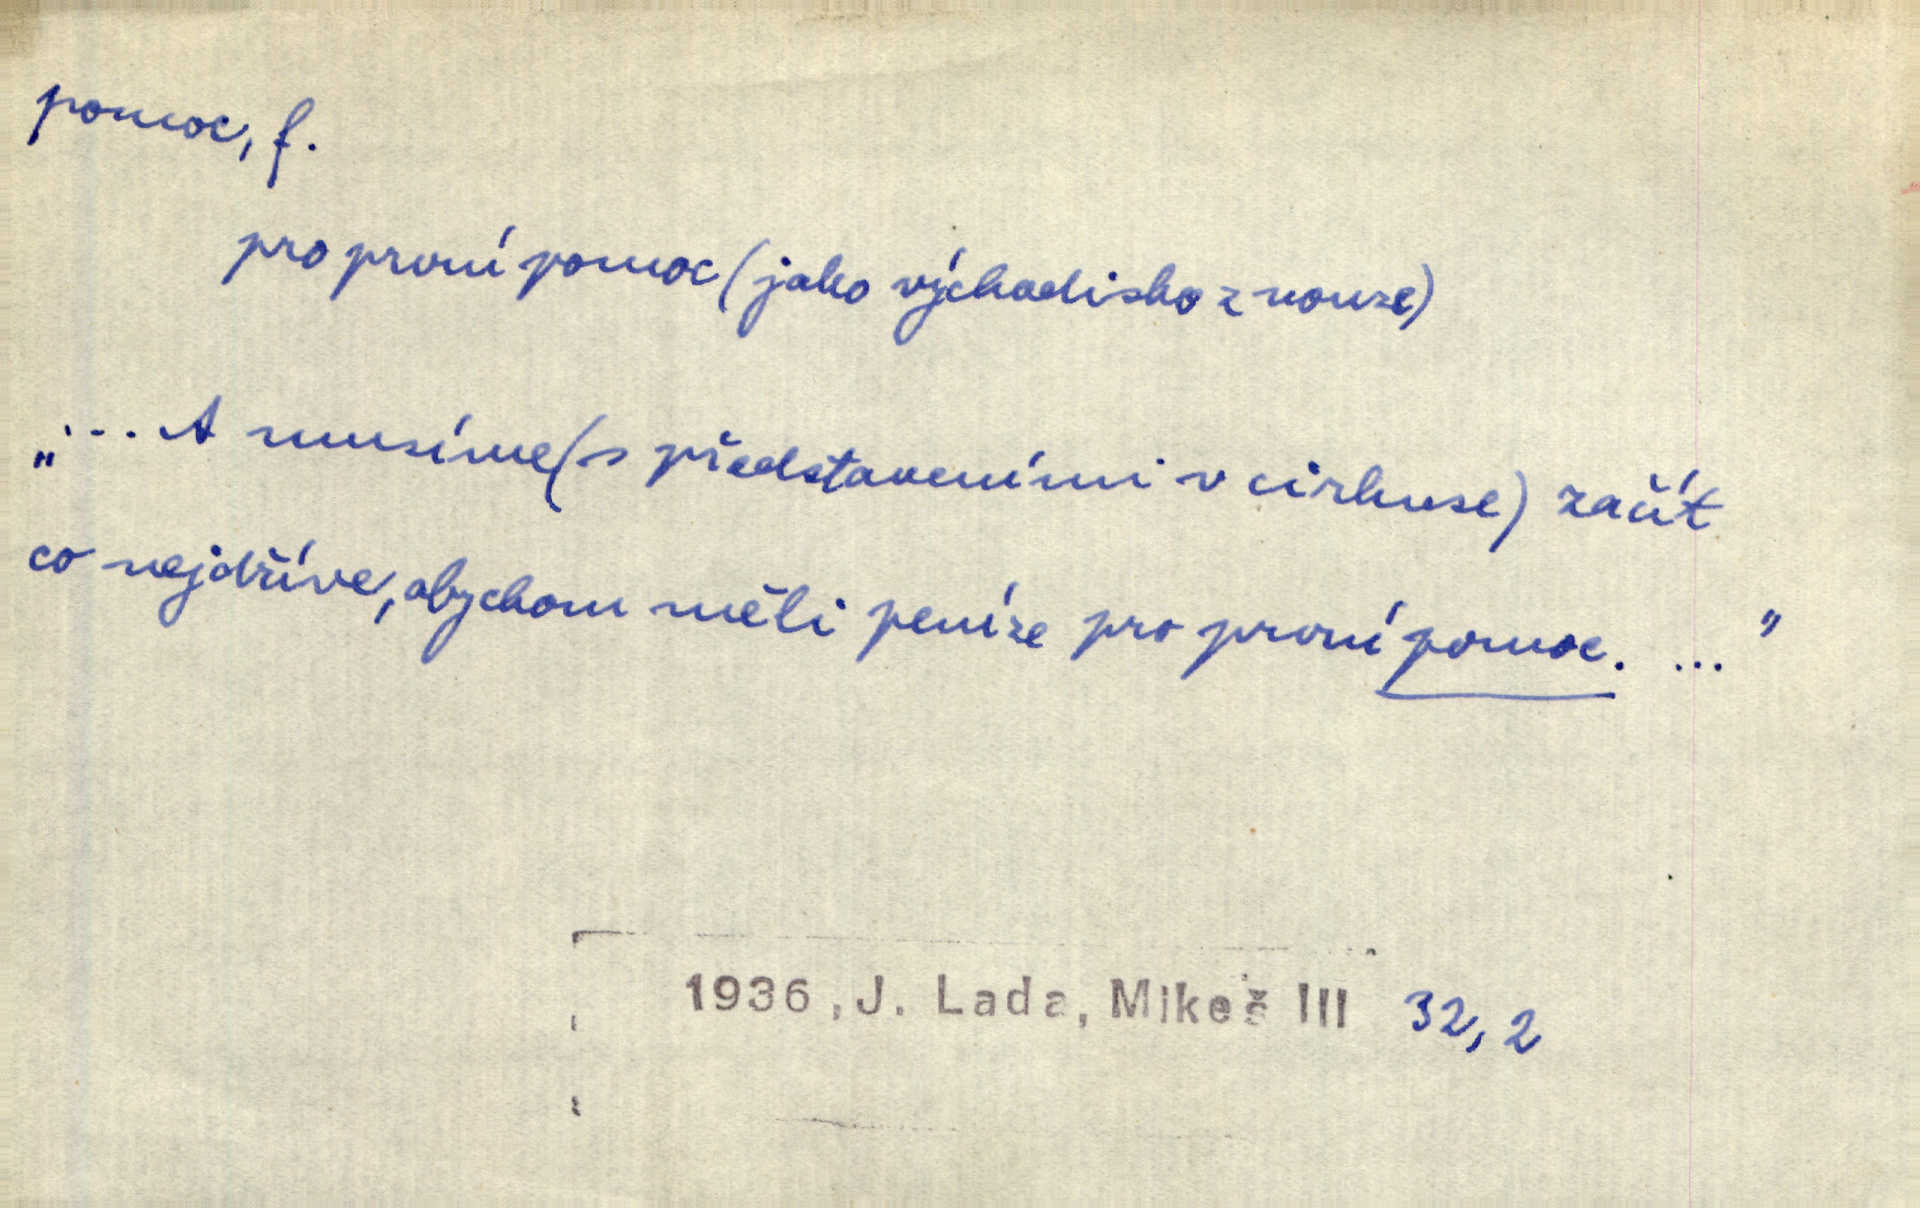 pomoc, f.
pro první pomoc (jako východisko z nouze)
„... A musíme (s představeními v cirkuse) začít
co nejdříve, abychom měli peníze pro první pomoc. ..."
1936, J. Lada, Mikeš III 32, 2